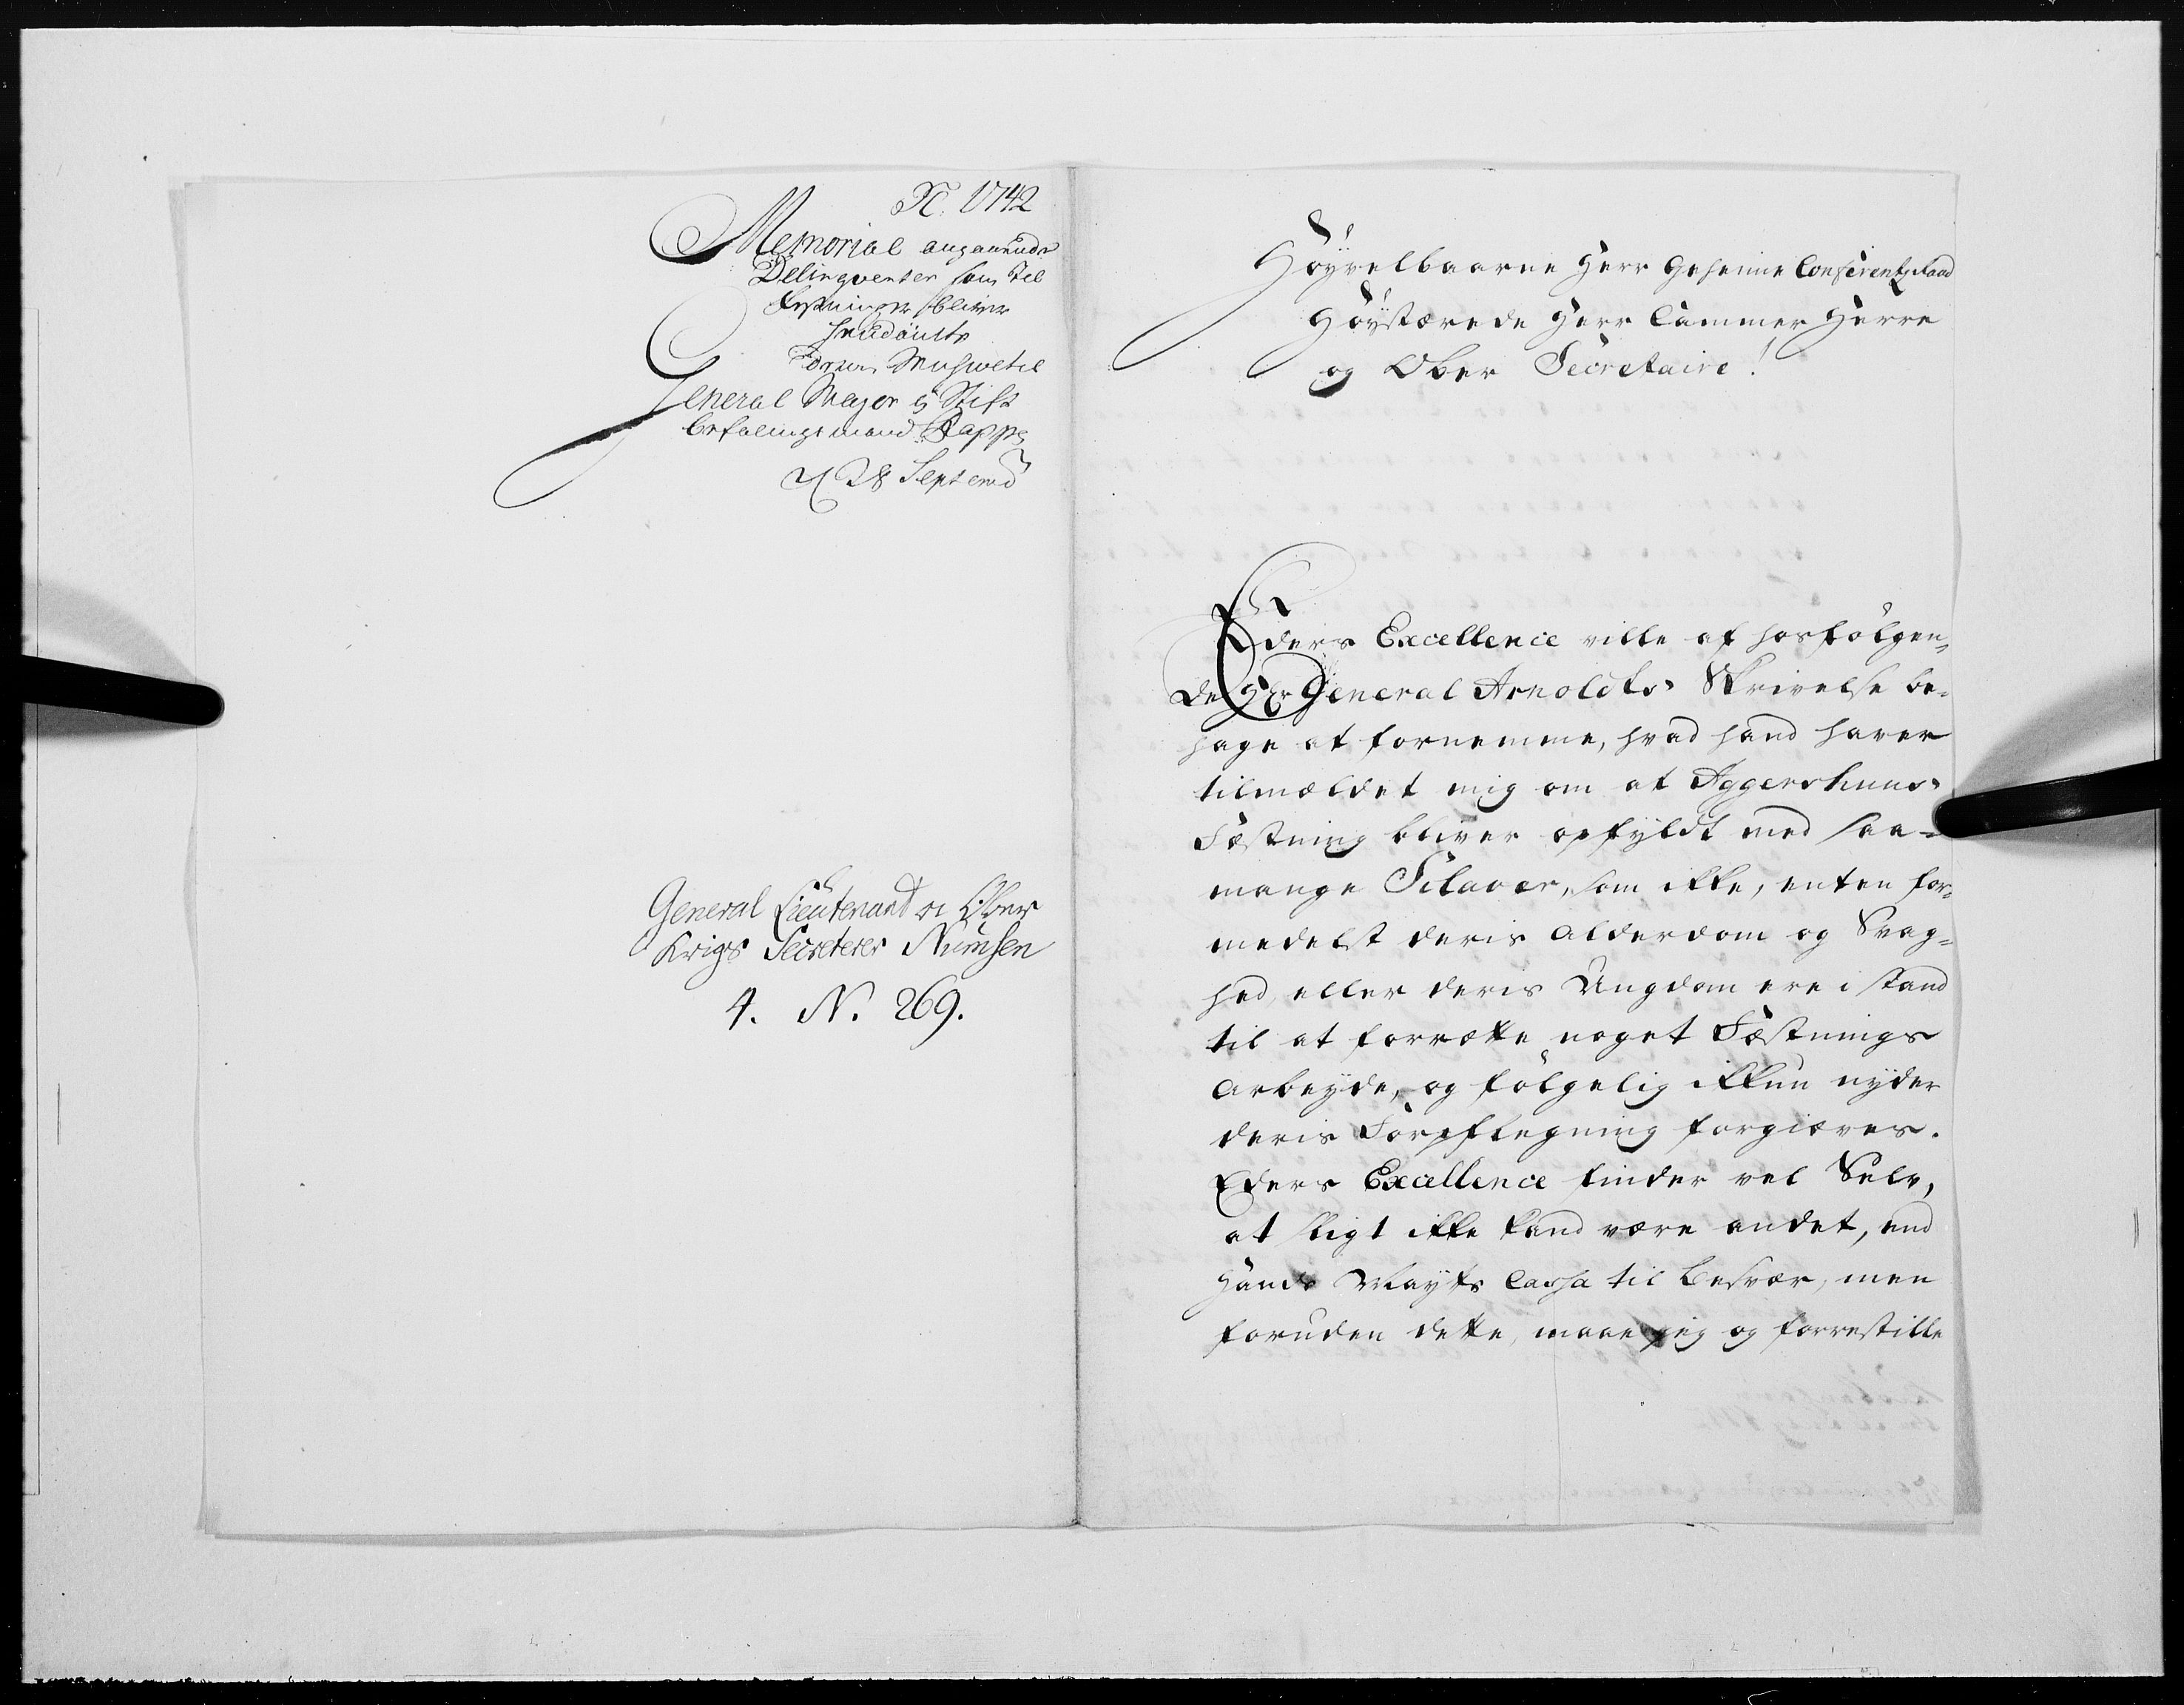 N. 1742
Memorial angaaende
Delinqventer som til
Festninger bliver
General Major og Stift
befalingsmand Rappe
28 Septemb
General Lieutenant og Ober
Krigs Secreterer Numsen
4. N. 269.
Høyvelbaarne Herr Geheime Conferentz Raad
Høystærede Herr Cammer Herre
og Ober Secretaire!
Eders Excellence ville af hosfølgen¬
de Hr General Arnoldts Skrivelse be¬
hage at fornemme, hvad hand haver
tilmældet mig om at Aggershuus
Fæstning bliver opfyldt med saa¬
mange Sclaver, som ikke, enten for¬
medelst deris Alderdom og Svag¬
hed, eller deris Ungdom ere i stand
til at forrætte noget Fæstnings
Arbeyde, og følgelig ikkun nyder
deris Forpflegning forgiæves.
Eders Excellence finder vel Selv,
at sligt ikke kand være andet, end
Hands Mayts Cassa til Besvær, men
foruden dette, maae jeg og forrestille